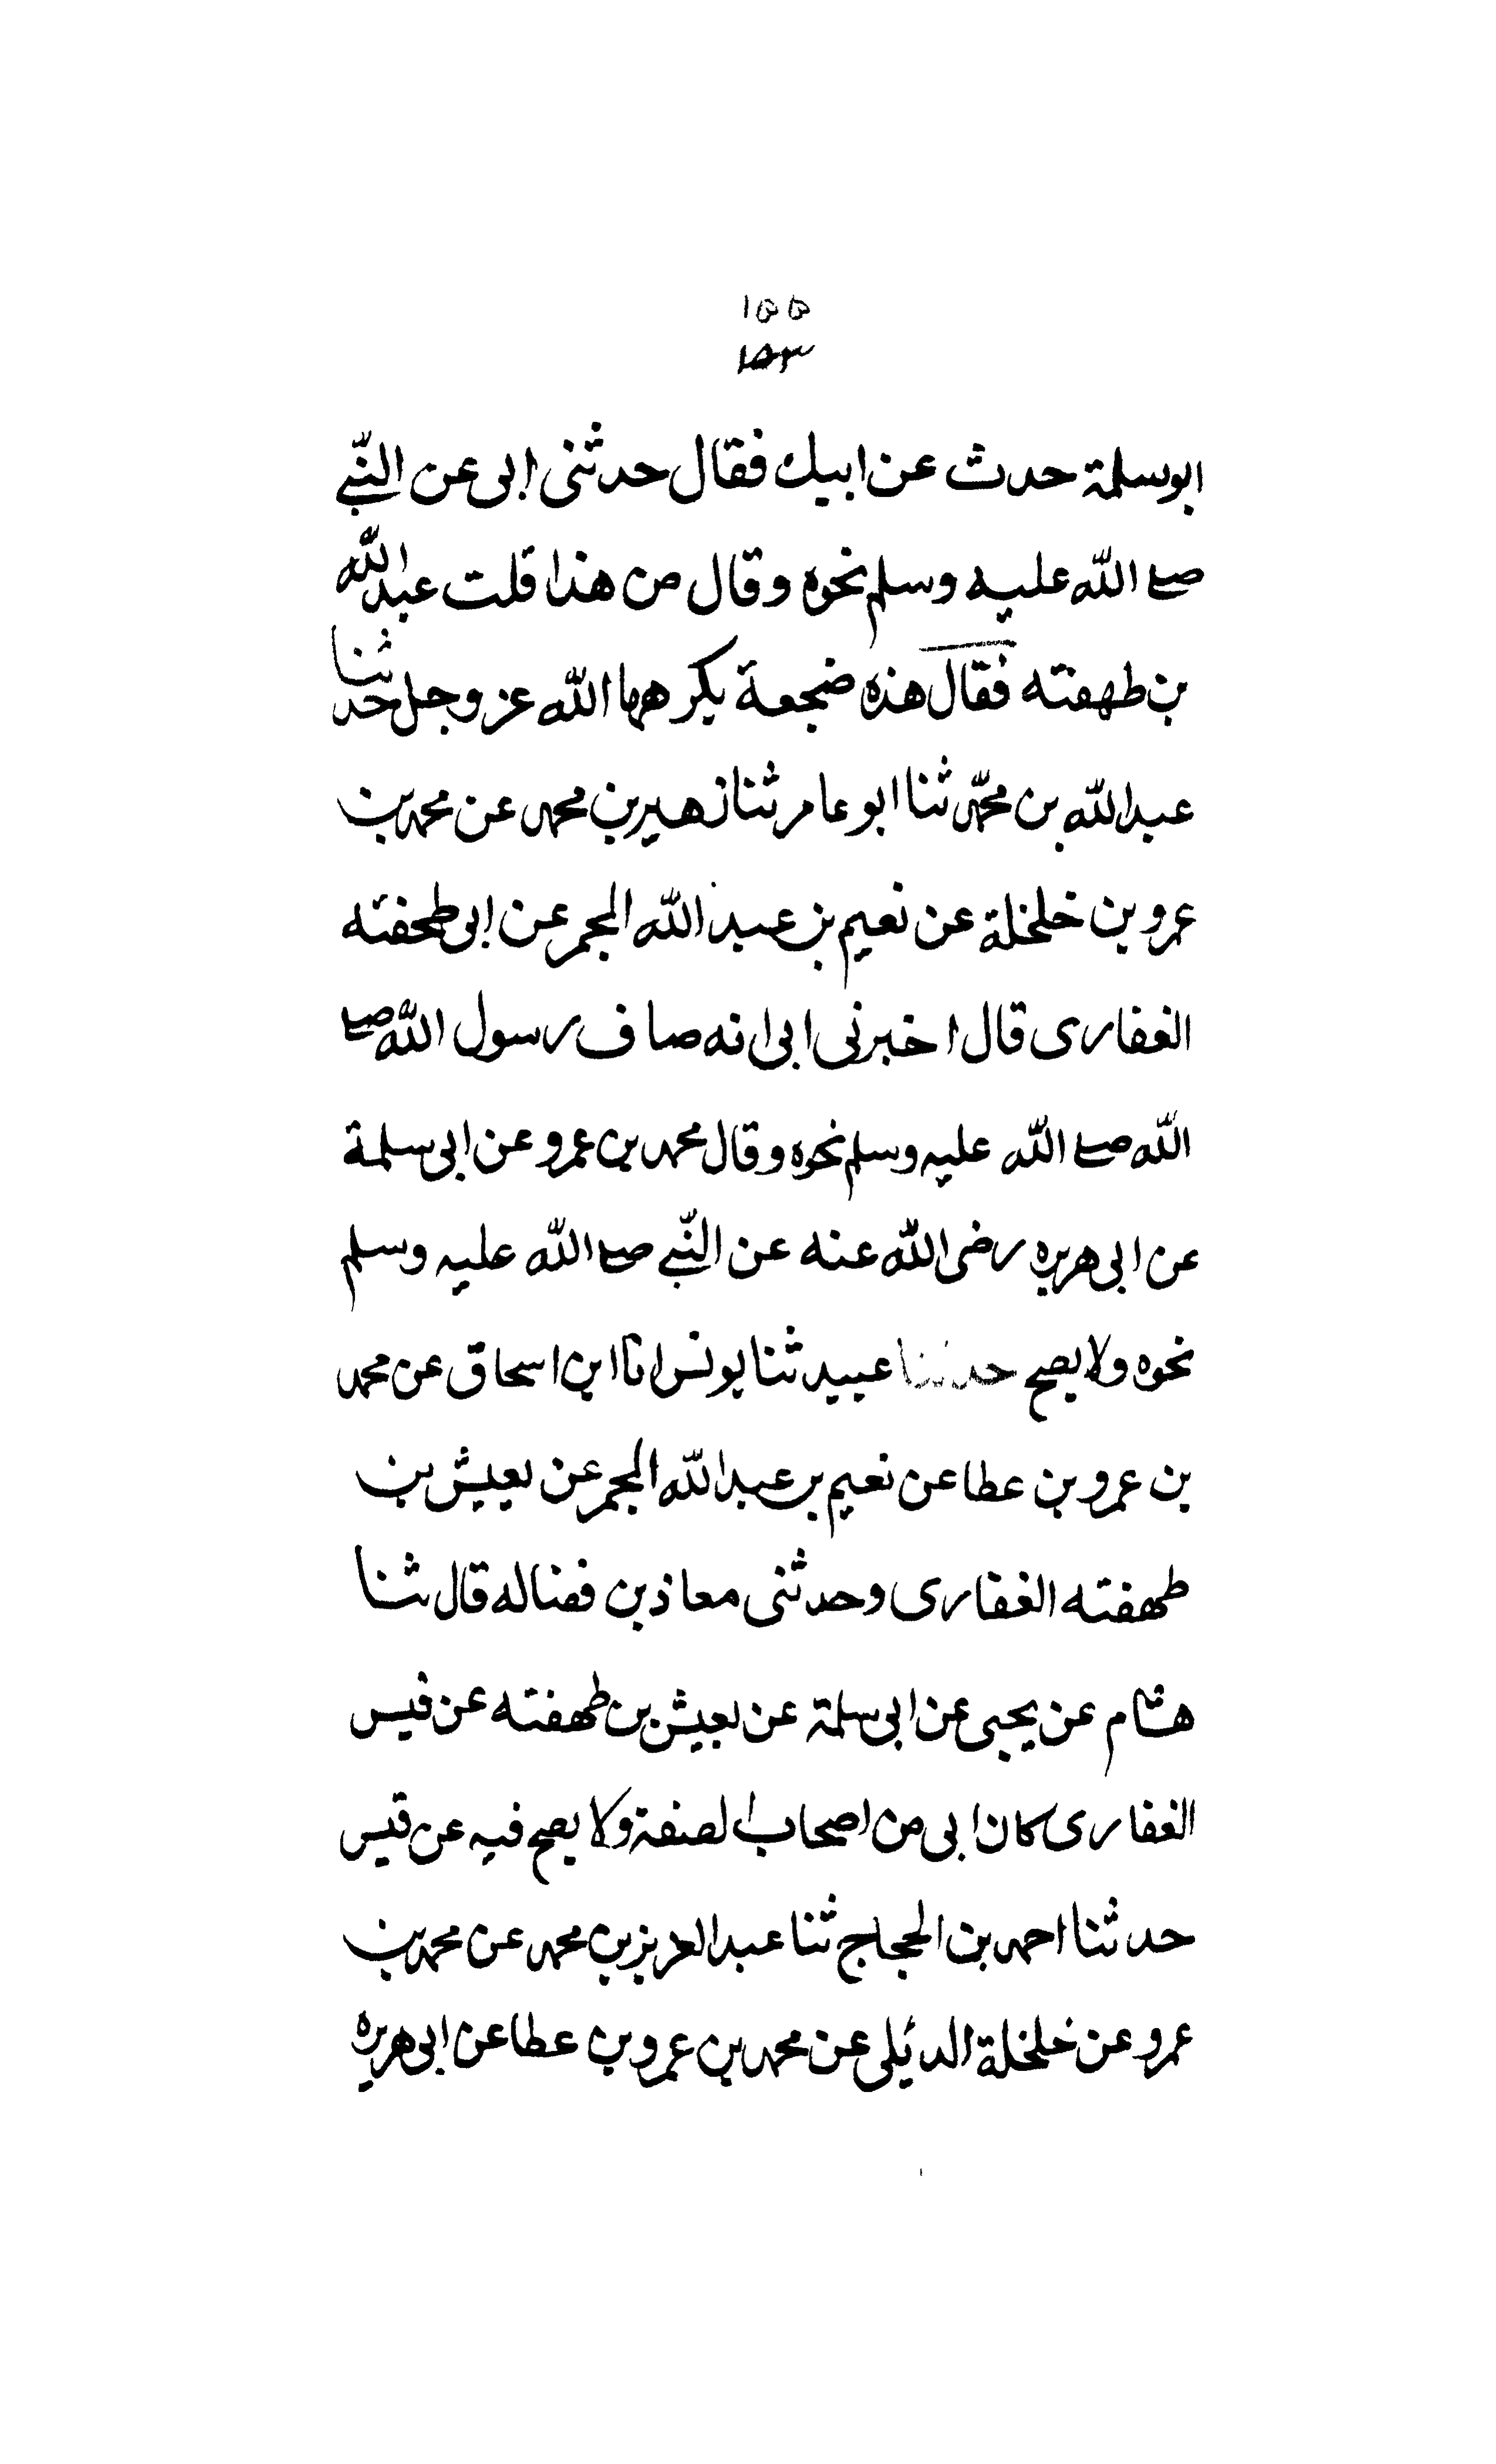 ١٥٥
١٥٣
ابو سلمة حدث عن ابيك فقال حدثنى ابى عن النبى
صلے الله عليه وسلم نحوه وقال من هذا قلت عبدالله
بن طهفته فقال هذه ضجعة يكرهها الله عز وجل حدثنا
عبدالله بن محمّد ثنا ابو عامر ثنا زهير بن محمد عن محمد بن
عمرو بن خلخلة عن نعيم بن عبدالله المجمر عن ابى طحفته
الغفارى قال اخبرنى ابى انه صاف رسول الله صلے
الله صلے الله عليه وسلم نحوه وقال محمد بن عمرو عن ابى سلمة
عن ابى هريره رضى الله عنه عن النبى صلے الله عليه وسلم
نحوه ولا يصح حدثنا عبيد ثنا يونس انا ابن اسحاق عن محمد
بن عمرو بن عطا عن نعيم بن عبدالله المجمر عن يعيش بن
طهفته الغفارى وحدثنى معاذ بن فضاله قال ثنا
هشام عن يحيى عن ابى سلمة عن يعيش بن طهفته عن قيس
الغفارى كان ابى من اصحاب الصفة ولا يصح فيه عن قيس
حدثنا احمد بن الحجاج ثنا عبد العزيز بن محمد عن محمد بن
عمرو عن خلخلة الديلى عن محمد بن عمرو بن عطا عن ابى هريره